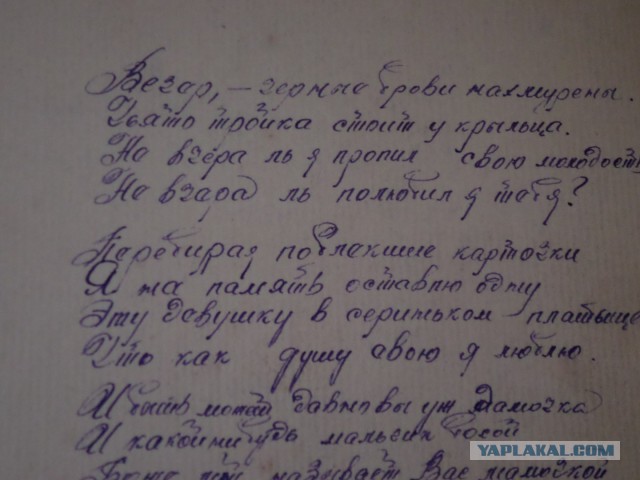 Вечер, — черные брови нахмурены.
Чьято тройка стоит у крыльца.
Не вчера ль я пропил свою молодость
Не вчера ль полюбил я тебя?
Перебирая поблекшие карточки
Я на память оставлю одну
Эту девушку в сереньком платьице
Что как душу свою я люблю.
И быть может давно вы уж дамочка
И какойнибудь мальчик босой
вас мамочкой
YAPLAKAL.COM